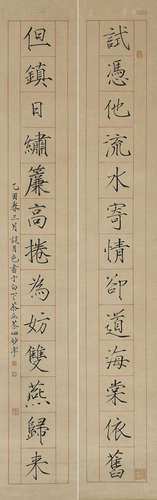 試憑他流水寄情卻道海棠依舊
但鎮日繡簾高捲為妨雙燕歸來